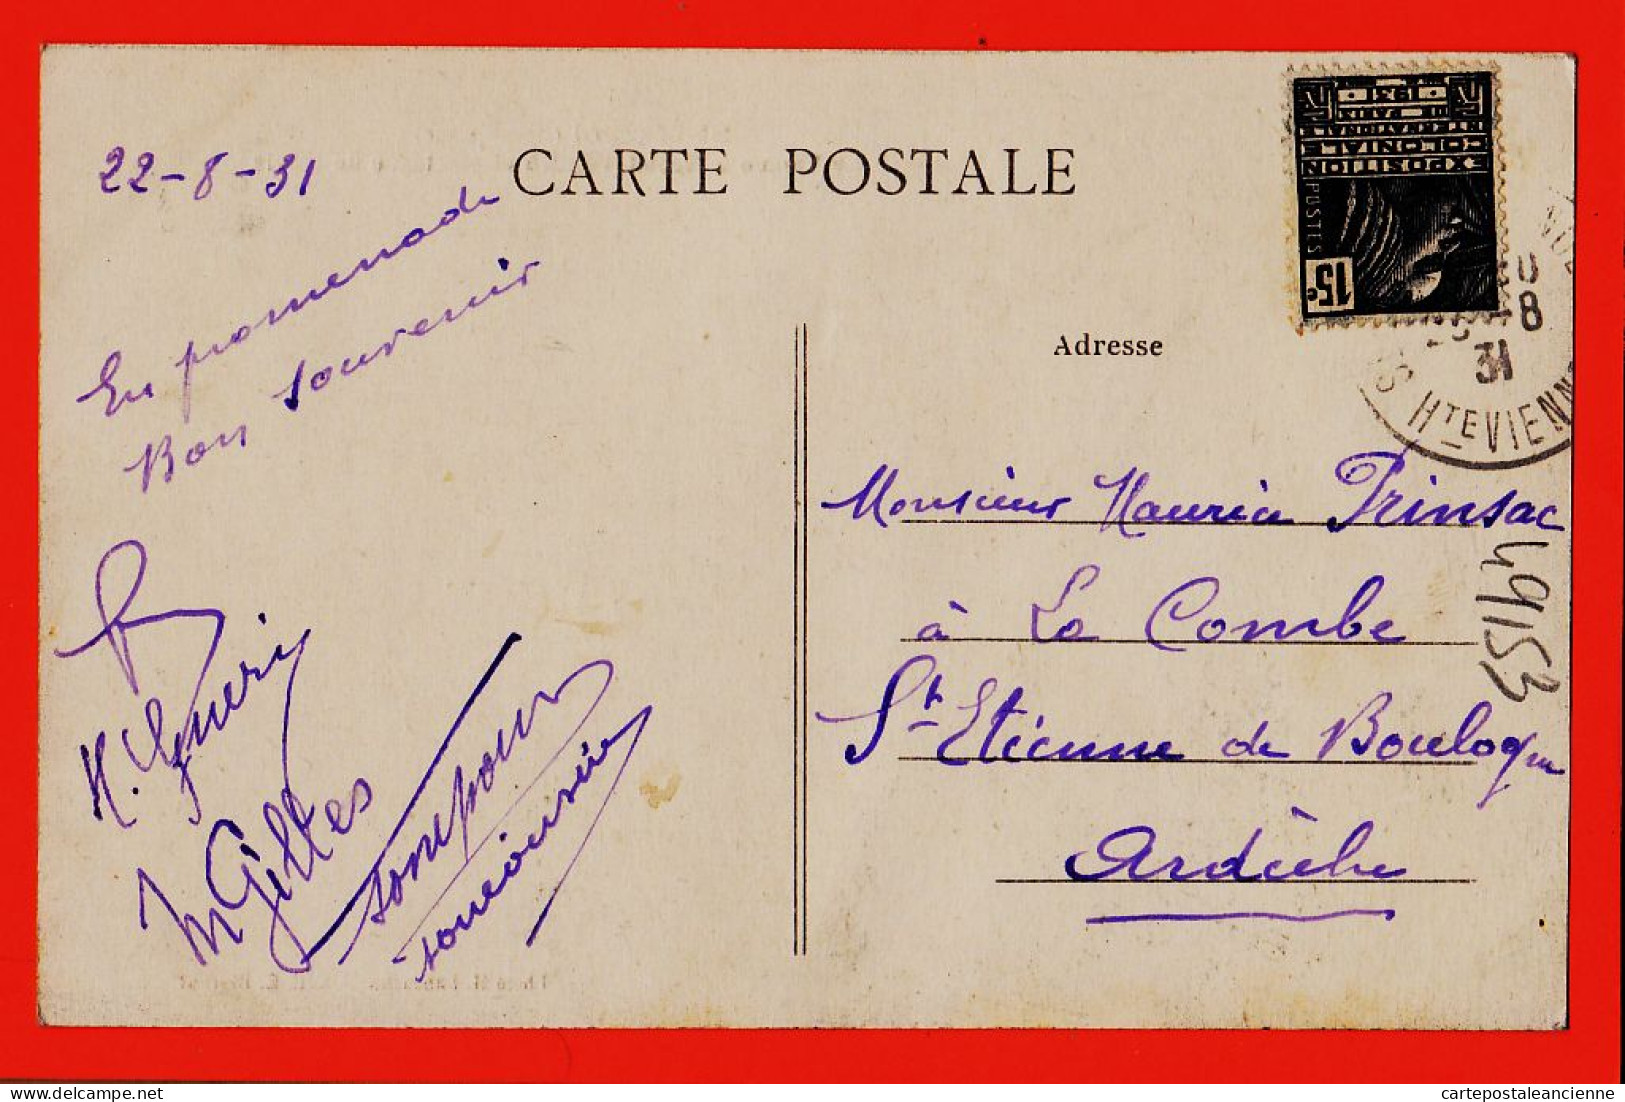 CARTE POSTALE
22-8-31
En promenade
Bon souvenir
M Gilles
Adresse
Monsieur Maurice Prinsac
à La Combe
St Etienne de Boulogne
Ardèche
49153
EXPOSITION
COLONIALE
INTERNATIONALE
DE PARIS
1931
POSTES
15c
8
31
HTE VIENN
delcampe.net
cartepostaleancienne